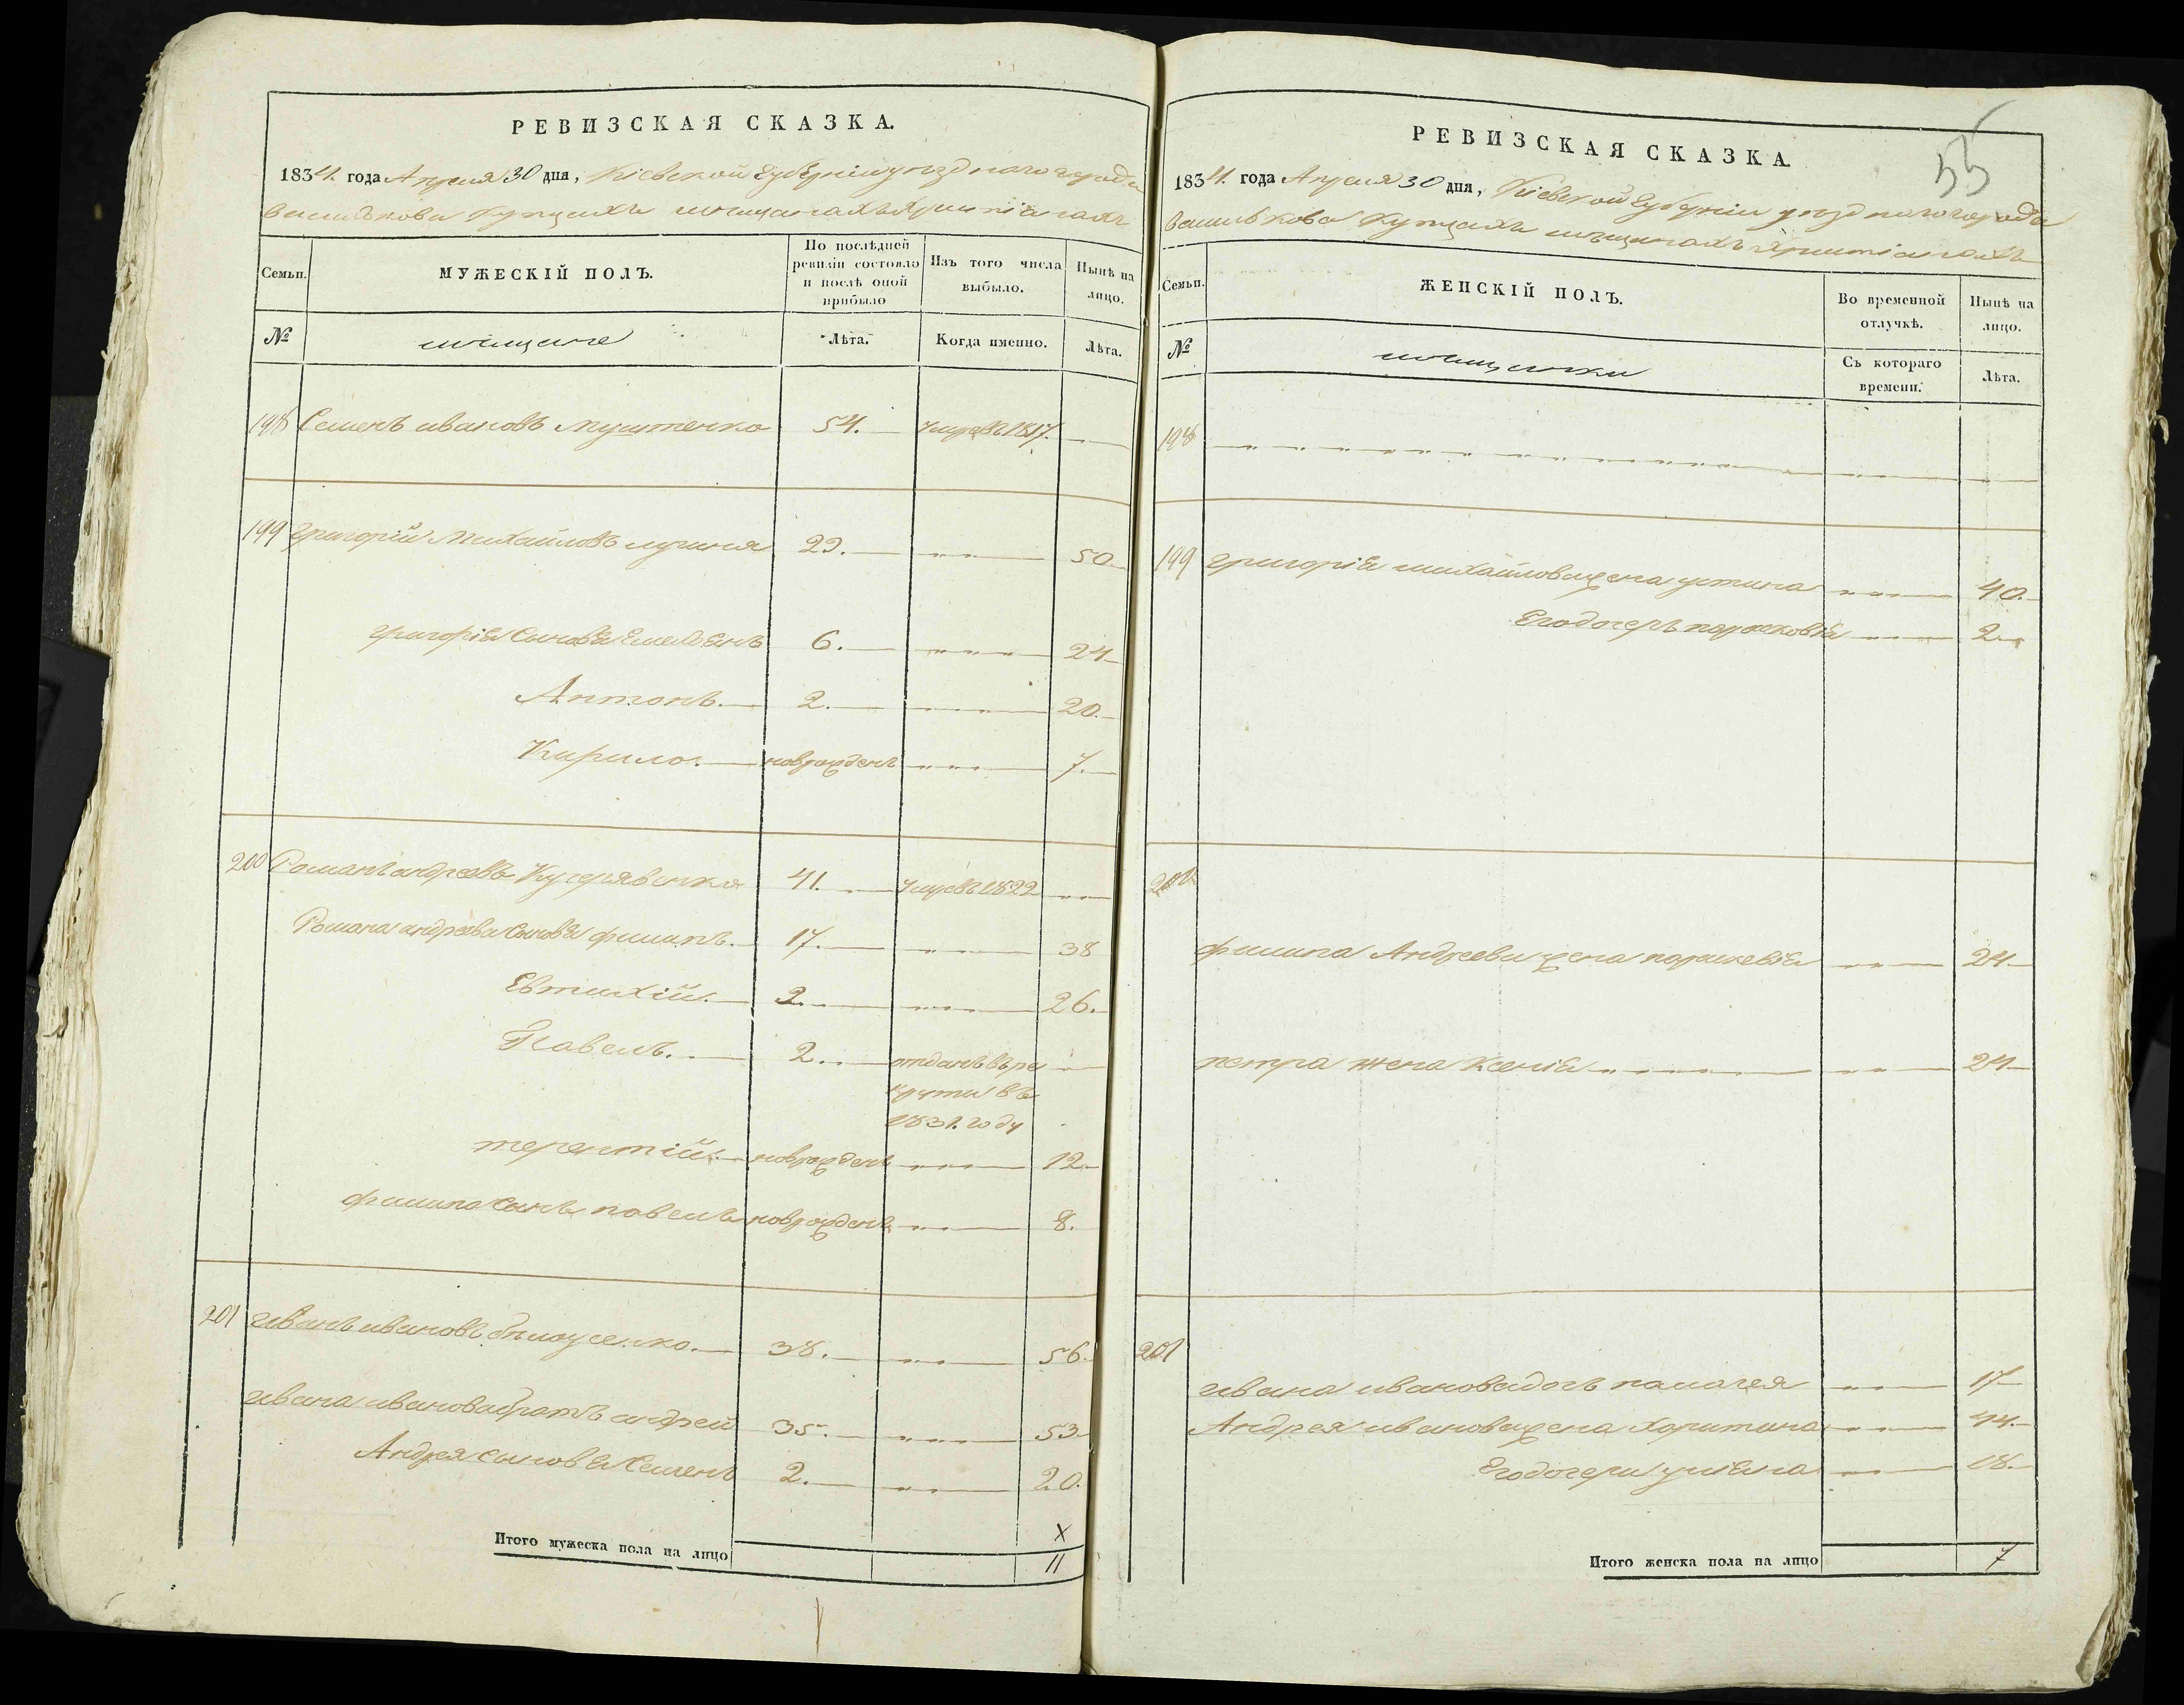 РЕВИЗСКАЯ СКАЗКА.
1834. года Апреля 30 дня, Кіевской Губерніи уезднаго города
Василькова Купцахъ мещанахъ христіанахъ
Семьи.
МУЖЕСКІЙ ПОЛЪ.
По послѣдней ревизіи состояло и послѣ оной прибыло
Изъ того числа выбыло.
Нынѣ на лицо.
№
мещане
Лѣта.
Когда именно.
Лѣта.
198 Семенъ ивановъ 54. умре въ 1817.
199 Григорій Михайловъ 29. 50.
григорія Сыновья Емельянъ 6. 24
Антонъ. 2. 20.
Кирило. новрожденъ 7.
200 Романъ андреевъ Кучерявенко 41. умре въ 1822
Романа андреева Сыновья филипъ. 17. 38
Евтихій. 2. 26.
Павелъ. 2. отданъ въ ре
круты въ
1831. году
терентій. новрожденъ 12.
филипа Сынъ павелъ новрожденъ 8.
201 Иванъ ивановъ бѣлоусенко. 38. 56.
Ивана иванова братъ андрей 35. 53.
Андрея сыновья Семенъ 2. 20.
X
Итого мужеска пола на лицо 11
55
РЕВИЗСКАЯ СКАЗКА.
1834. года Апреля 30 дня, Кіевской Губерніи уезднаго города
Василькова Купцахъ мещанахъ христіанахъ
Семьи.
ЖЕНСКІЙ ПОЛЪ.
Во временной отлучкѣ.
Нынѣ на лицо.
№
мещанки
Съ котораго времени.
Лѣта.
198
199 григорія михайлова жена устина 40.
Его дочерь парасковія 2
200
филипа Андреева жена параскевія 24
петра жена Ксенія 24
201
ивана иванова дочь палагея 17
Андрея иванова жена харитина 44.
Его дочери уліяна 18.
Итого женска пола на лицо 7